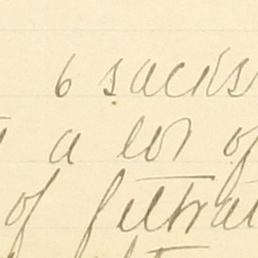 6 sacks
a lot of
of filtrat